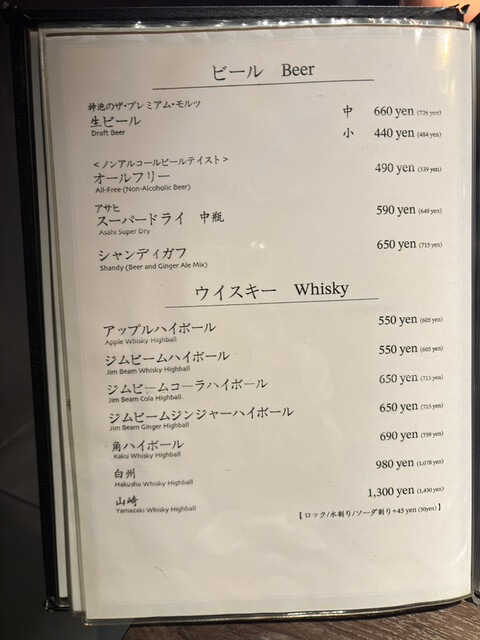 ビール Beer
神泡のザ・プレミアム・モルツ
生ビール 中 660 yen (726 yen)
Draft Beer 小 440 yen (484 yen)
<ノンアルコールビールテイスト>
オールフリー 490 yen (539 yen)
All-Free (Non-Alcoholic Beer)
アサヒ
スーパードライ 中瓶 590 yen (649 yen)
Asahi Super Dry
シャンディガフ 650 yen (715 yen)
Shandy (Beer and Ginger Ale Mix)
ウイスキー Whisky
アップルハイボール 550 yen (605 yen)
Apple Whisky Highball
ジムビームハイボール 550 yen (605 yen)
Jim Beam Whisky Highball
ジムビームコーラハイボール 650 yen (715 yen)
Jim Beam Cola Highball.
ジムビームジンジャーハイボール 650 yen (715 yen)
Jim Beam Ginger Highball
角ハイボール 690 yen (759 yen)
Kaku Whisky Highball
白州 980 yen (1,078 yen)
Hakushu Whisky Highball
山崎 1,300 yen (1,430 yen)
Yamazaki Whisky Highball
【 ロック/水割り/ソーダ割り+45 yen (50yen) 】